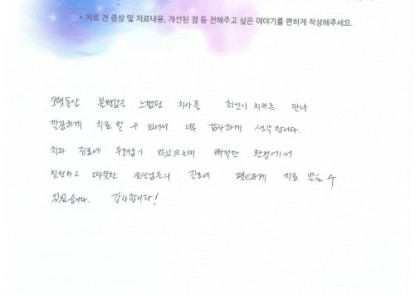 * 치료 전 증상 및 치료내용, 개선된 점 등 전해주고 싶은 이야기를 편하게 작성해주세요.
오랫동안 불편함을 느꼈던 치아를 만나
깔끔하게 치료 할 수 있어서 너무 감사하게 생각합니다.
치과 진료에 두려움이 많았는데 쾌적한 환경에서
친절하고 따뜻한 선생님들의 진료에 편안하게 치료 받을 수
있었습니다. 감사합니다!